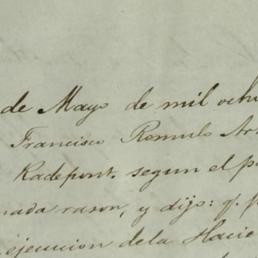 de Mayo de mil ocho
Francisco Romulo Ar
Radepont, segun el p
nada razon, y dijo: q.e p
ejecucion de la Hacie